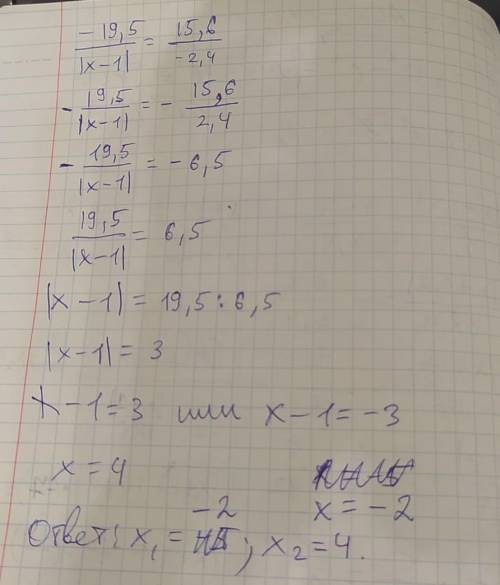 -19,5/|x-1| = 15,6/-2,4
- 19,5/|x-1| = - 15,6/2,4
- 19,5/|x-1| = - 6,5
19,5/|x-1| = 6,5
|x-1| = 19,5 : 6,5
|x-1| = 3
x-1=3 или x-1=-3
x=4 x=-2
Ответ: x₁ = -2 ; x₂=4.